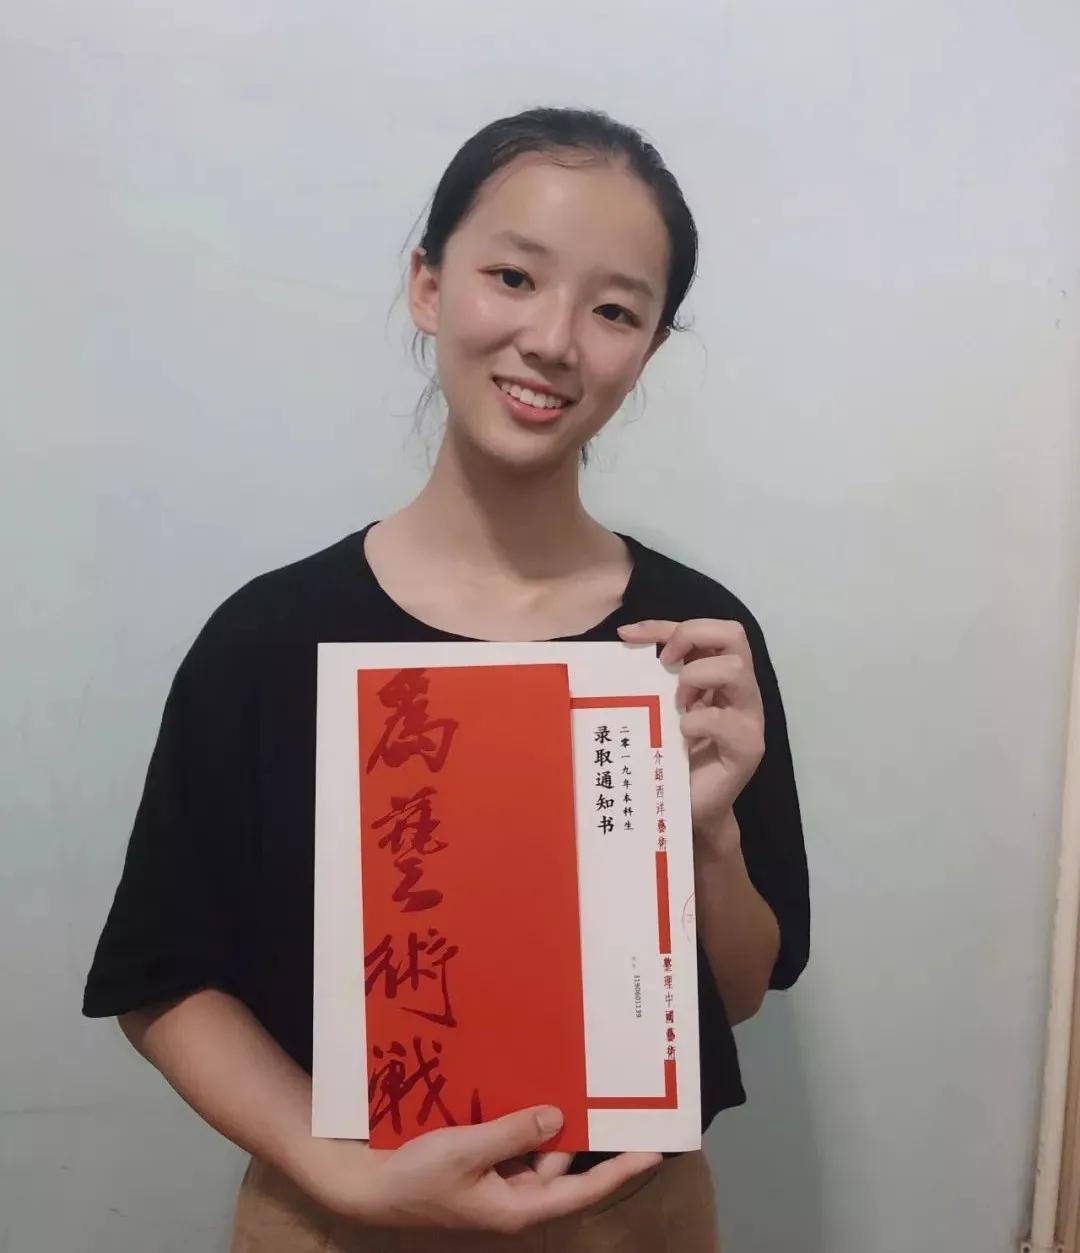 為藝術戰
二零一九年本科生
录取通知书
介紹西洋藝術
整理中國藝術
3190601139